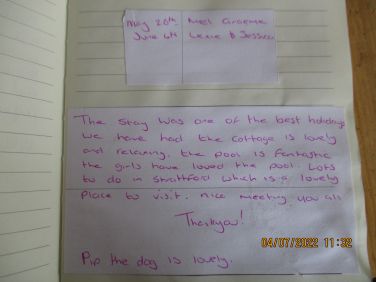 May 28th Mel Graeme
June 6th Lexie & Jessica
The stay was one of the best holidays
we have had the cottage is lovely
and relaxing. the pool is fantastic
the girls have loved the pool. Lots
to do in Strattford which is a lovely
place to visit. nice meeting you all
Thankyou!
04/07/2022 11:32
Pip the dog is lovely.